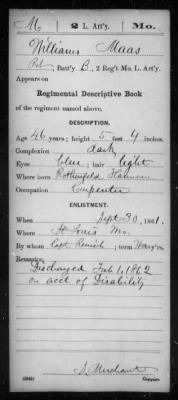 M | 2 L. Art'y. | Mo.
Williams Maas
Pvt., Batt'y B, 2 Reg't Mo. L. Art'y.
Appears on
Regimental Descriptive Book
of the regiment named above.
DESCRIPTION.
Age 46 years; height 5 feet 4 inches.
Complexion dark
Eyes blue; hair light
Where born
Occupation Carpenter
ENLISTMENT.
When Sept 30, 1861.
Where St Louis Mo.
By whom Capt; term yrs.
Remarks:
Discharged Feb 1, 1862
on acct of Disability
S. Merchant
Copyist.